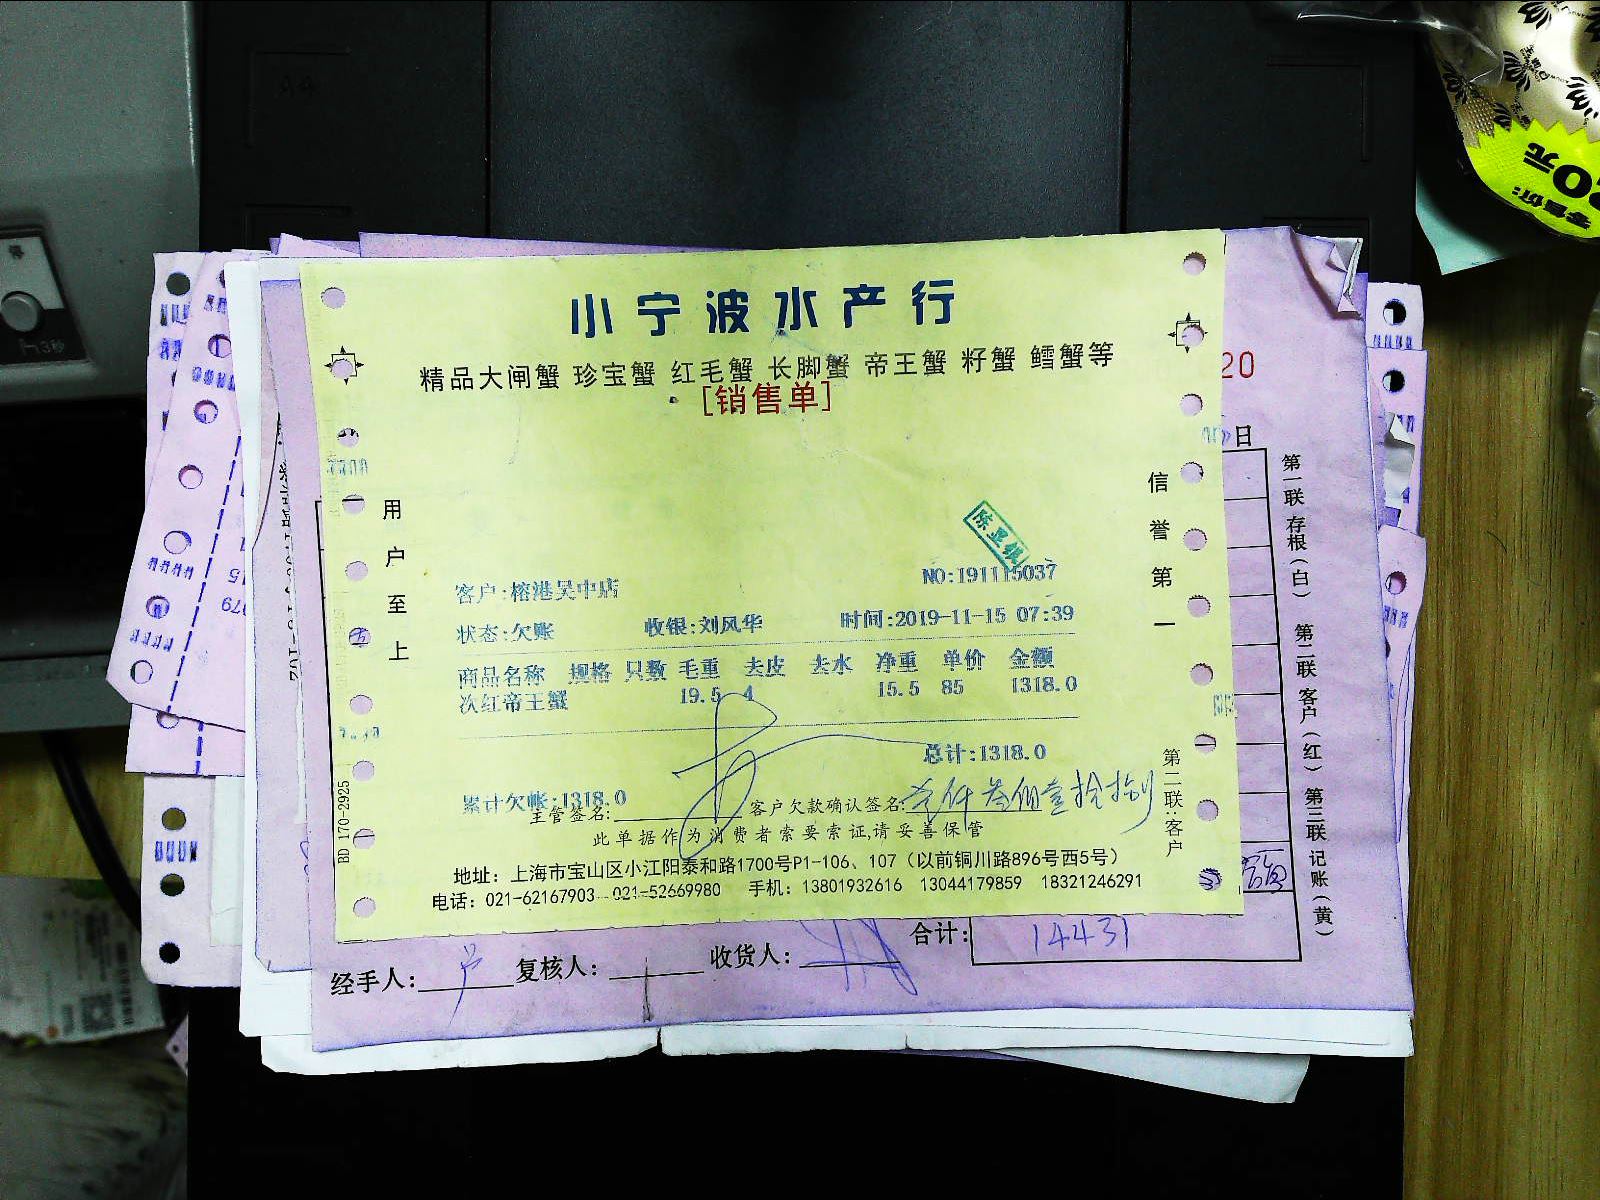 小宁波水产行
精品大闸蟹 珍宝蟹 红毛蟹 长脚蟹 帝王蟹 籽蟹 鳕蟹等
[销售单]
用户至上
信誉第一
陈亚银
NO:191115037
客户:榕港吴中店
状态:欠账 收银:刘风华 时间:2019-11-15 07:39
商品名称 规格 只数 毛重 去皮 去水 净重 单价 金额
次红帝王蟹 19.5 4 15.5 85 1318.0
总计:1318.0
累计欠帐:1318.0
主管签名: 客户欠款确认签名: 壹仟叁佰壹拾捌
此单据作为消费者索要索证,请妥善保管
地址: 上海市宝山区小江阳泰和路1700号P1-106、107 (以前铜川路896号西5号)
电话: 021-62167903 021-52669980 手机: 13801932616 13044179859 18321246291
第二联:客户
BD 170-2925
20
日
第一联 存根(白) 第二联 客户(红) 第三联 记账(黄)
合计: 14431
经手人: 复核人: 收货人:
零售价:
0元